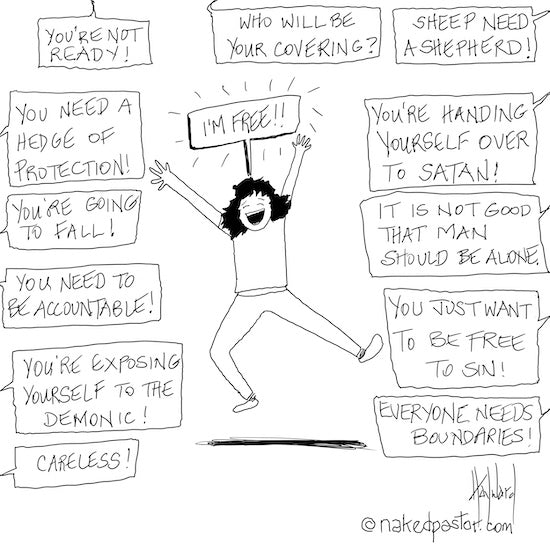 YOU'RE NOT
READY!
WHO WILL BE
YOUR COVERING?
SHEEP NEED
A SHEPHERD!
YOU NEED A
HEDGE OF
PROTECTION!
I'M FREE!!
YOU'RE HANDING
YOURSELF OVER
TO SATAN!
YOU'RE GOING
TO FALL!
IT IS NOT GOOD
THAT MAN
SHOULD BE ALONE.
YOU NEED TO
BE ACCOUNTABLE!
YOU JUST WANT
TO BE FREE
TO SIN!
YOU'RE EXPOSING
YOURSELF TO THE
DEMONIC!
EVERYONE NEEDS
BOUNDARIES!
CARELESS!
Hayward
@nakedpastor.com